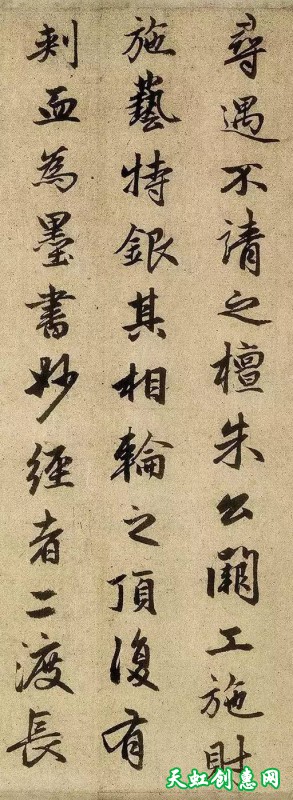 尋遇不請之檀朱公闢工施財
施藝特銀其相輪之頂復有
刺血為墨書妙經者二渡長
天虹创惠网